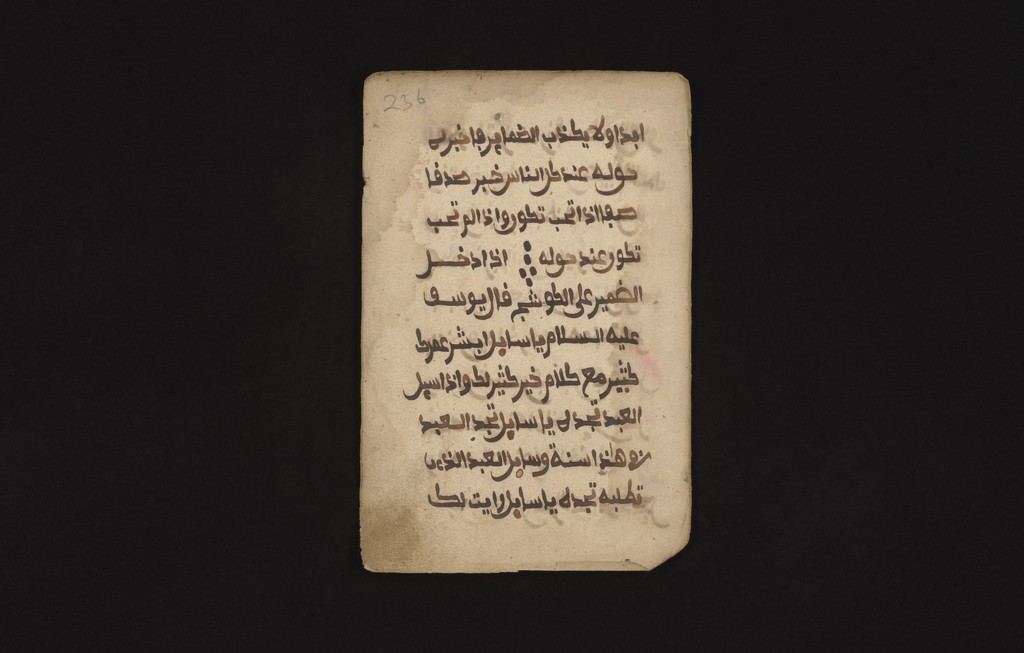 236
ابدا ولا يكذب الضماير فاخبرت
حوله عند كل الناس خبر صدفا
صفا اذا تحب تطور واذا لم تحب
تطور عند حوله اذا دخل
الضمير على الطو شيخ فال يوسف
عليه السلام يا سايل ابشر عمرك
كثير مع كلام خير كثير لك واذا سيل
العبد تجده يا سايل تجد العبد
هذا سنة وسايل العبد الذى
تطلبه تجده يا سايل رايت لك